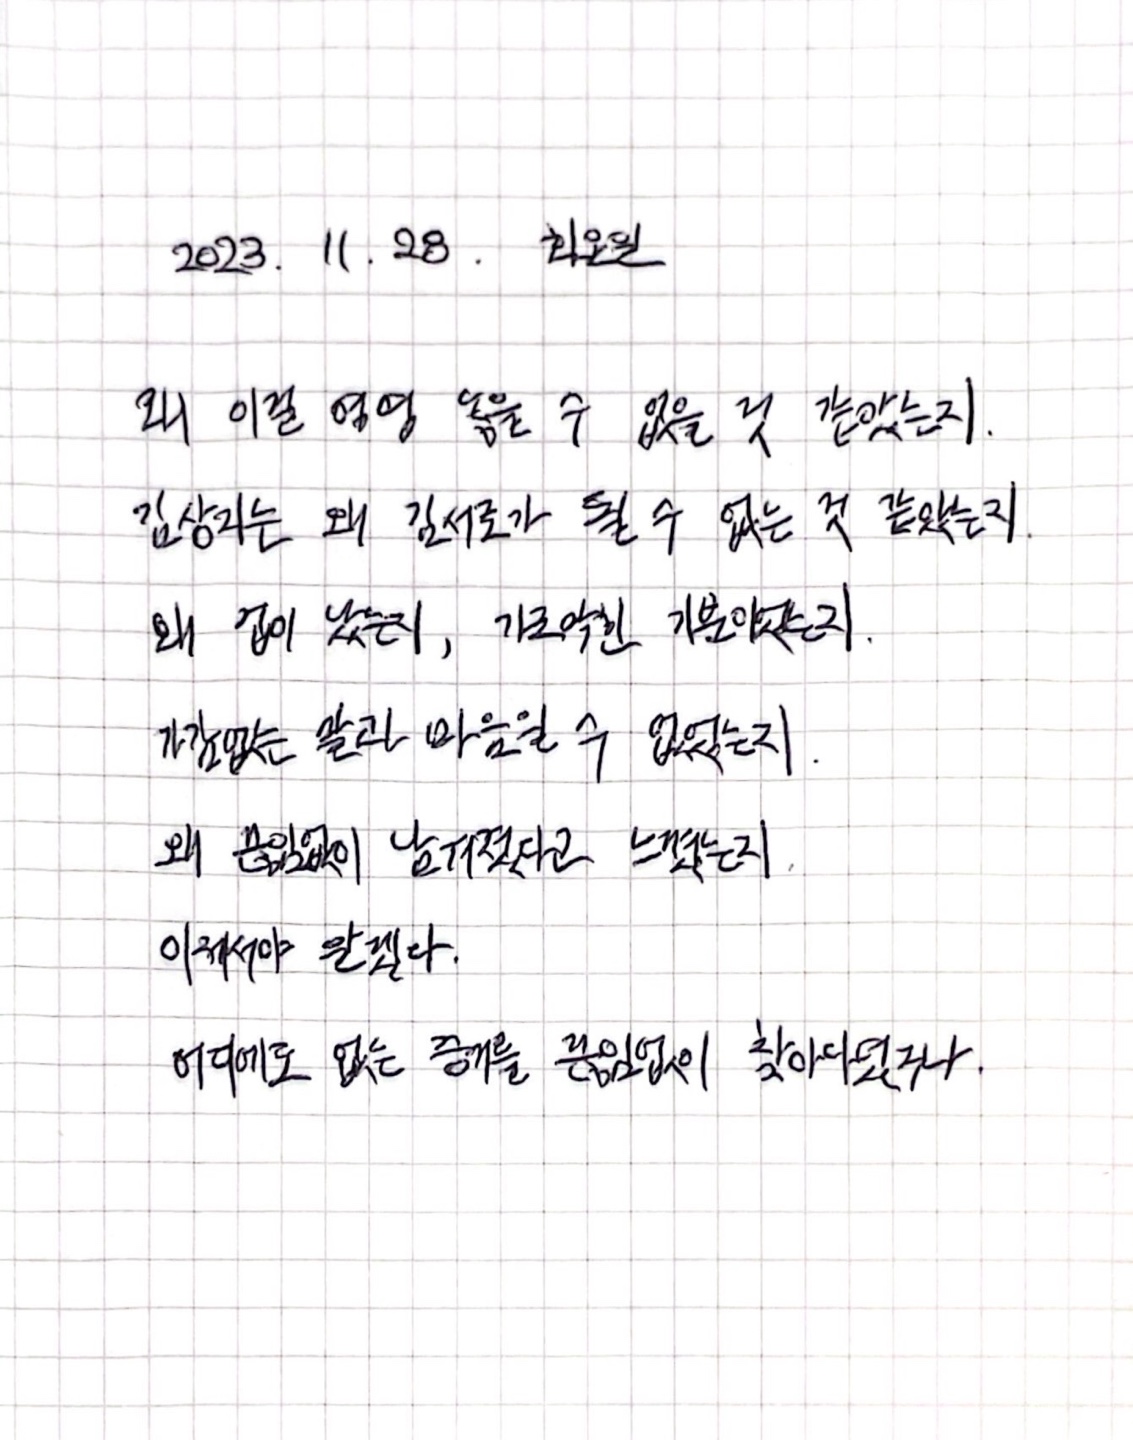 2023. 11. 28. 화요일
왜 이걸 영영 놓을 수 없을 것 같았는지.
김상과는 왜 김서로가 될 수 없는 것 같았는지.
왜 겁이 났는지, 가로막힌 기분이었는지.
가감없는 말과 마음일 수 없었는지.
왜 끊임없이 남겨졌다고 느꼈는지.
이제서야 알겠다.
어디에도 없는 증거를 끊임없이 찾아다녔구나.